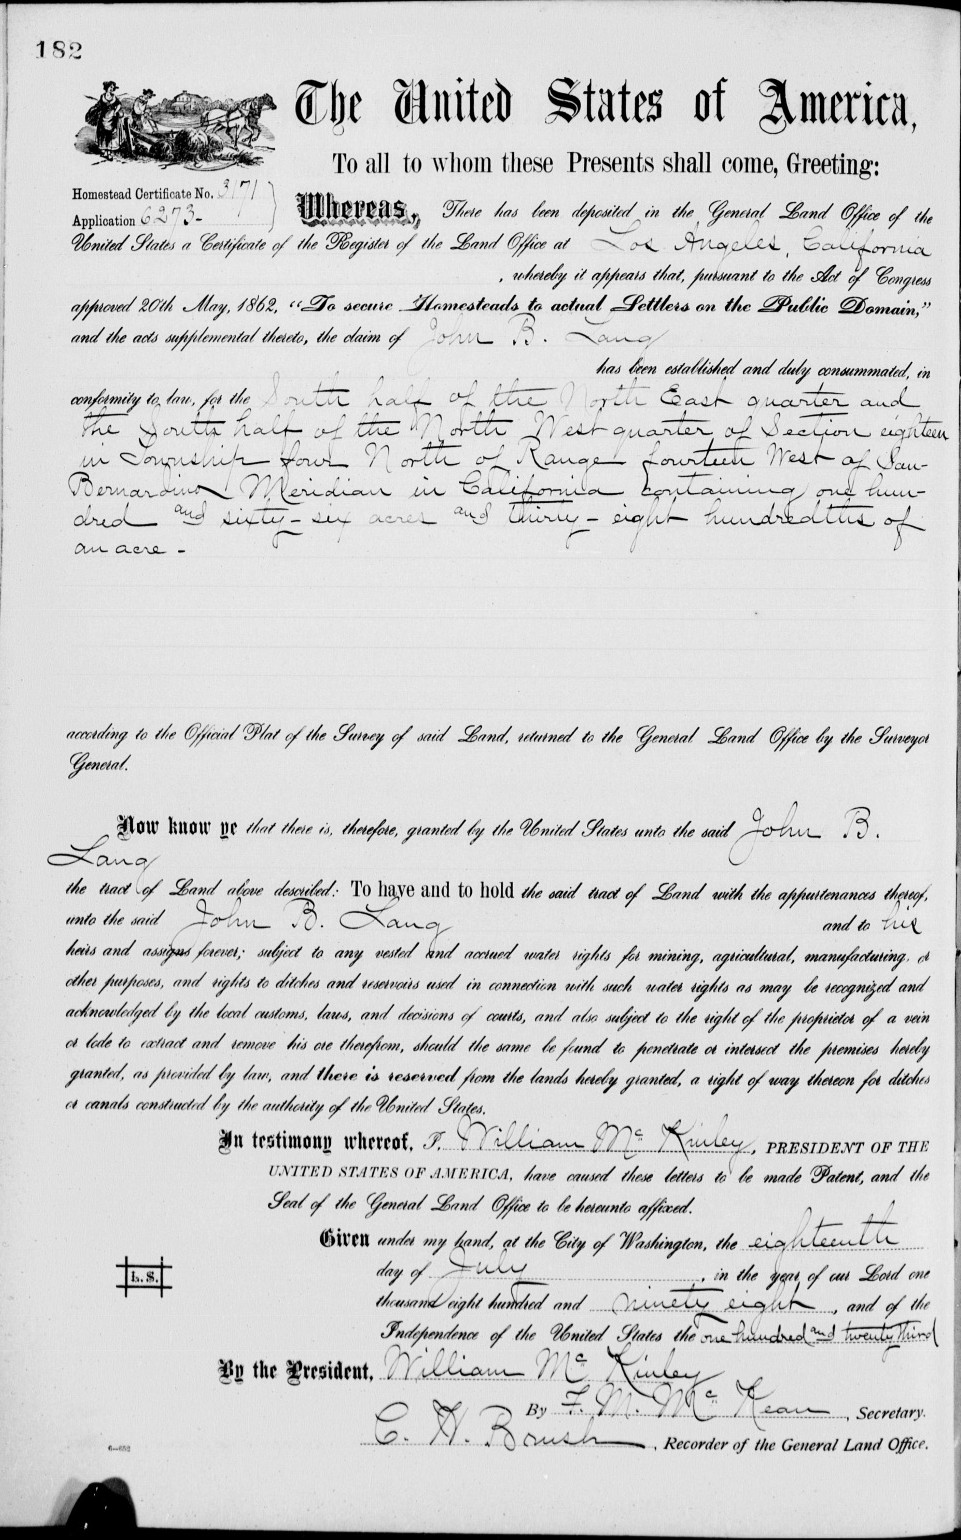 182
The United States of America,
To all to whom these Presents shall come, Greeting:
Homestead Certificate No. 3171
Application 6273-
Whereas, There has been deposited in the General Land Office of the
United States a Certificate of the Register of the Land Office at Los Angeles, California
, whereby it appears that, pursuant to the Act of Congress
approved 20th May, 1862, "To secure Homesteads to actual Settlers on the Public Domain,"
and the acts supplemental thereto, the claim of John B. Lang
has been established and duly consummated, in
conformity to law, for the South half of the North East quarter and
the South half of the North West quarter of Section eighteen
in Township four North of Range fourteen West of San
Bernardino Meridian in California containing one hun-
dred and sixty-six acres and thirty-eight hundredths of
an acre-
according to the Official Plat of the Survey of said Land, returned to the General Land Office by the Surveyor
General.
Now know ye that there is, therefore, granted by the United States unto the said John B.
Lang
the tract of Land above described: To have and to hold the said tract of Land with the appurtenances thereof,
unto the said John B. Lang and to his
heirs and assigns forever; subject to any vested and accrued water rights for mining, agricultural, manufacturing, or
other purposes, and rights to ditches and reservoirs used in connection with such water rights as may be recognized and
acknowledged by the local customs, laws, and decisions of courts, and also subject to the right of the proprietor of a vein
or lode to extract and remove his ore therefrom, should the same be found to penetrate or intersect the premises hereby
granted, as provided by law, and there is reserved from the lands hereby granted, a right of way thereon for ditches
or canals constructed by the authority of the United States.
In testimony whereof, I, William McKinley, PRESIDENT OF THE
UNITED STATES OF AMERICA, have caused these letters to be made Patent, and the
Seal of the General Land Office to be hereunto affixed.
Given under my hand, at the City of Washington, the eighteenth
day of July, in the year of our Lord one
thousand eight hundred and ninety eight, and of the
Independence of the United States the one hundred and twenty third
L.S.
By the President, William McKinley
By F. M. McKean, Secretary.
C. H. Brush, Recorder of the General Land Office.
6-652